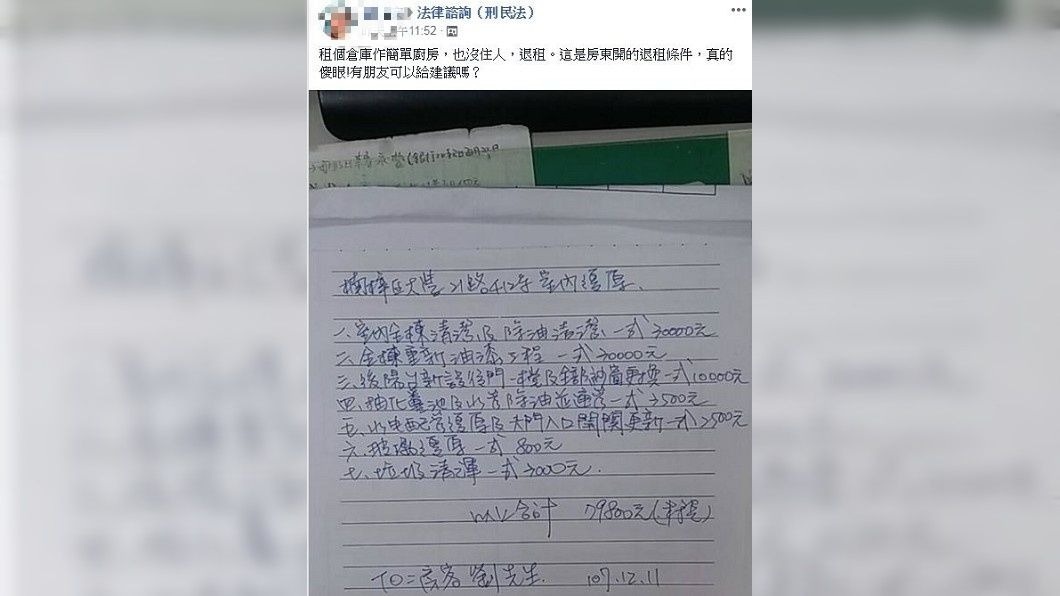 法律諮詢（刑民法）
午11:52
租個倉庫作簡單廚房，也沒住人，退租。這是房東開的退租條件，真的
傻眼!有朋友可以給建議嗎？
楠梓區大豐 室內復原.
一、室內全棟清潔及除油清潔 一式 30000元
二、全棟重新油漆工程 一式30000元
三、後陽台新設後門一樘及全部紗窗更換一式10000元
四、抽化糞池及水管除油並通管一式3500元
五、水電配管復原及大門入口開關更新一式2500元
六、玻璃復原一式 800元
七、垃圾清運一式3000元.
以上合計 79800元(未稅)
TO:房客 劉先生. 107.12.11